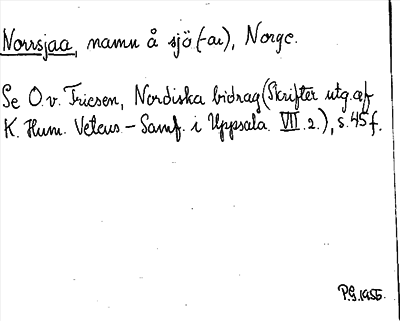 Norrsjaa, namn å sjö (-ar), Norge.
Se O. v. Friesen, Nordiska bidrag (Skrifter utg. af
K. Hum. Vetens-Samf. i Uppsala VII. 2.), s. 45 f.
P.G. 1955.